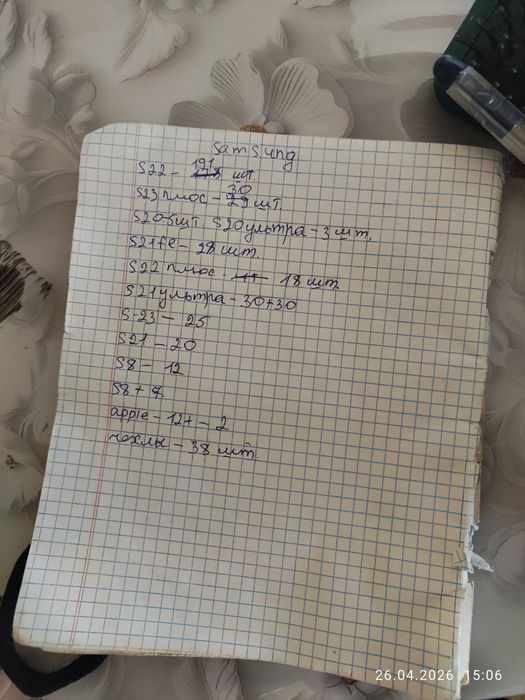 Samsung
S22 - 191 шт
S23 плюс - 30 шт
S20-5шт. S20 ультра - 3 шт.
S21fe - 28 шт.
S22 плюс - 18 шт.
S21 ультра - 30+30
S-23 - 25
S21 - 20
S8 - 12
S8+
apple - 12+ - 2
чехлы - 38 шт.
26.04.2026 15:06